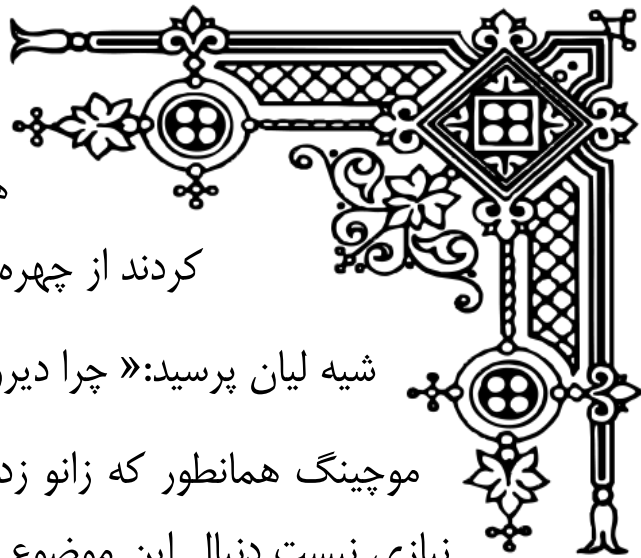 کردند از چهره
شیه لیان پرسید:« چرا
موچینگ همانطور که زانو
نیازی نیست دنبال این موضوع